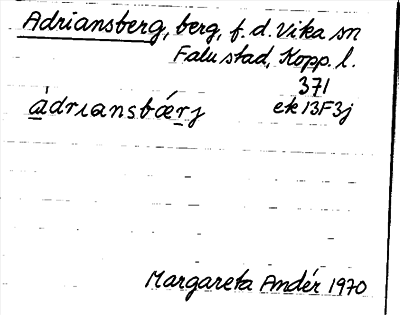 Adriansberg, berg, f. d. Vika sn
Falu stad, Kopp. l.
371
àdrıansbærj ek 13F3j
Margareta Andér 1970